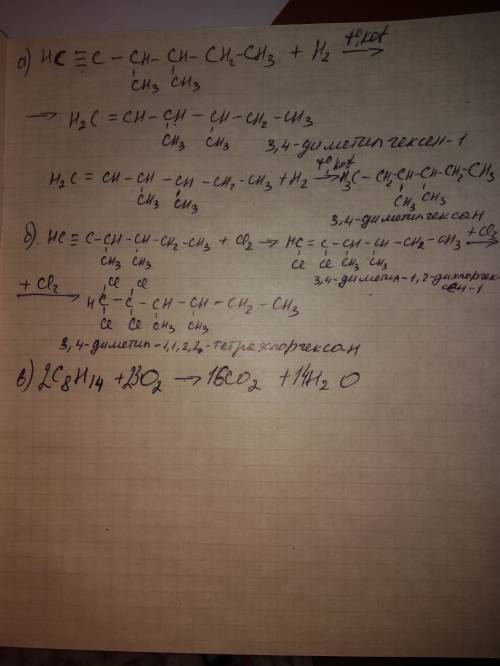 а) HC ≡ C – CH – CH – CH2 – CH3 + H2 t°, kat →
CH3 CH3
→ H2C = CH – CH – CH – CH2 – CH3
CH3 CH3
3,4-диметилгексен-1
H2C = CH – CH – CH – CH2 – CH3 + H2 t° kat → H3C – CH2 – CH – CH – CH2 – CH3
CH3 CH3 CH3 CH3
3,4-диметилгексан
б). HC ≡ C – CH – CH – CH2 – CH3 + Cl2 → HC = C – CH – CH – CH2 – CH3 + Cl2 →
CH3 CH3 Cl Cl CH3 CH3
3,4-диметил-1,2-дихлоргек-
сен-1
+ Cl2 → Cl Cl
HC – C – CH – CH – CH2 – CH3
Cl Cl CH3 CH3
3,4-диметил-1,1,2,2-тетрахлоргексан
в) 2C8H14 + 23O2 → 16CO2 + 14H2O